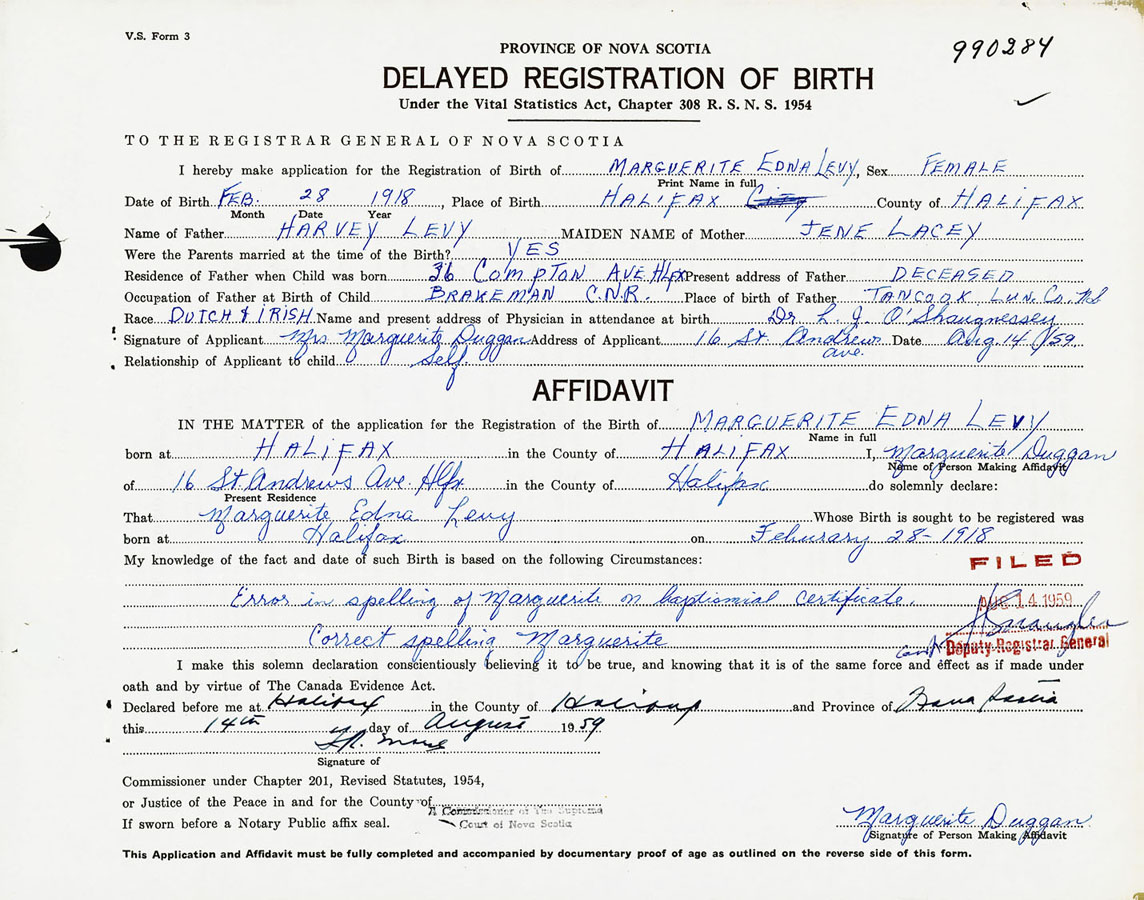 V.S. Form 3
990284
PROVINCE OF NOVA SCOTIA
DELAYED REGISTRATION OF BIRTH
Under the Vital Statistics Act, Chapter 308 R. S. N. S. 1954
TO THE REGISTRAR GENERAL OF NOVA SCOTIA
I hereby make application for the Registration of Birth of MARGUERITE EDNA LEVY, Sex FEMALE
Print Name in full
Date of Birth FEB. 28 1918, Place of Birth HALIFAX City County of HALIFAX
Month Date Year
Name of Father HARVEY LEVY MAIDEN NAME of Mother JENE LACEY
Were the Parents married at the time of the Birth? YES
Residence of Father when Child was born 36 COMPTON AVE HLFX Present address of Father DECEASED
Occupation of Father at Birth of Child BRAKEMAN C.N.R. Place of birth of Father TANCOOK LUN. Co. NS
Race DUTCH & IRISH Name and present address of Physician in attendance at birth Dr L. J. O'Shaugnessey
Signature of Applicant Mrs Marguerite Duggan Address of Applicant 16 St. Andrews ave. Date Aug. 14/59
Relationship of Applicant to child Self.
AFFIDAVIT
IN THE MATTER of the application for the Registration of the Birth of MARGUERITE EDNA LEVY
Name in full
born at HALIFAX in the County of HALIFAX I, Marguerite Duggan
Name of Person Making Affidavit
of 16 St. Andrews Ave. Hlfx in the County of Halifax do solemnly declare:
Present Residence
That Marguerite Edna Levy Whose Birth is sought to be registered was
born at Halifax on Feburary 28-1918
My knowledge of the fact and date of such Birth is based on the following Circumstances:
FILED
Error in spelling of Marguerite on baptismial certificate.
AUG 14 1959
Correct spelling Marguerite
Deputy Registrar General
I make this solemn declaration conscientiously believing it to be true, and knowing that it is of the same force and effect as if made under
oath and by virtue of The Canada Evidence Act.
Declared before me at Halifax in the County of Halifax and Province of Nova Scotia
this 14th day of August 1959
Signature of
Commissioner under Chapter 201, Revised Statutes, 1954,
or Justice of the Peace in and for the County of
A Commissioner of The Supreme
Court of Nova Scotia
If sworn before a Notary Public affix seal.
Marguerite Duggan
Signature of Person Making Affidavit
This Application and Affidavit must be fully completed and accompanied by documentary proof of age as outlined on the reverse side of this form.